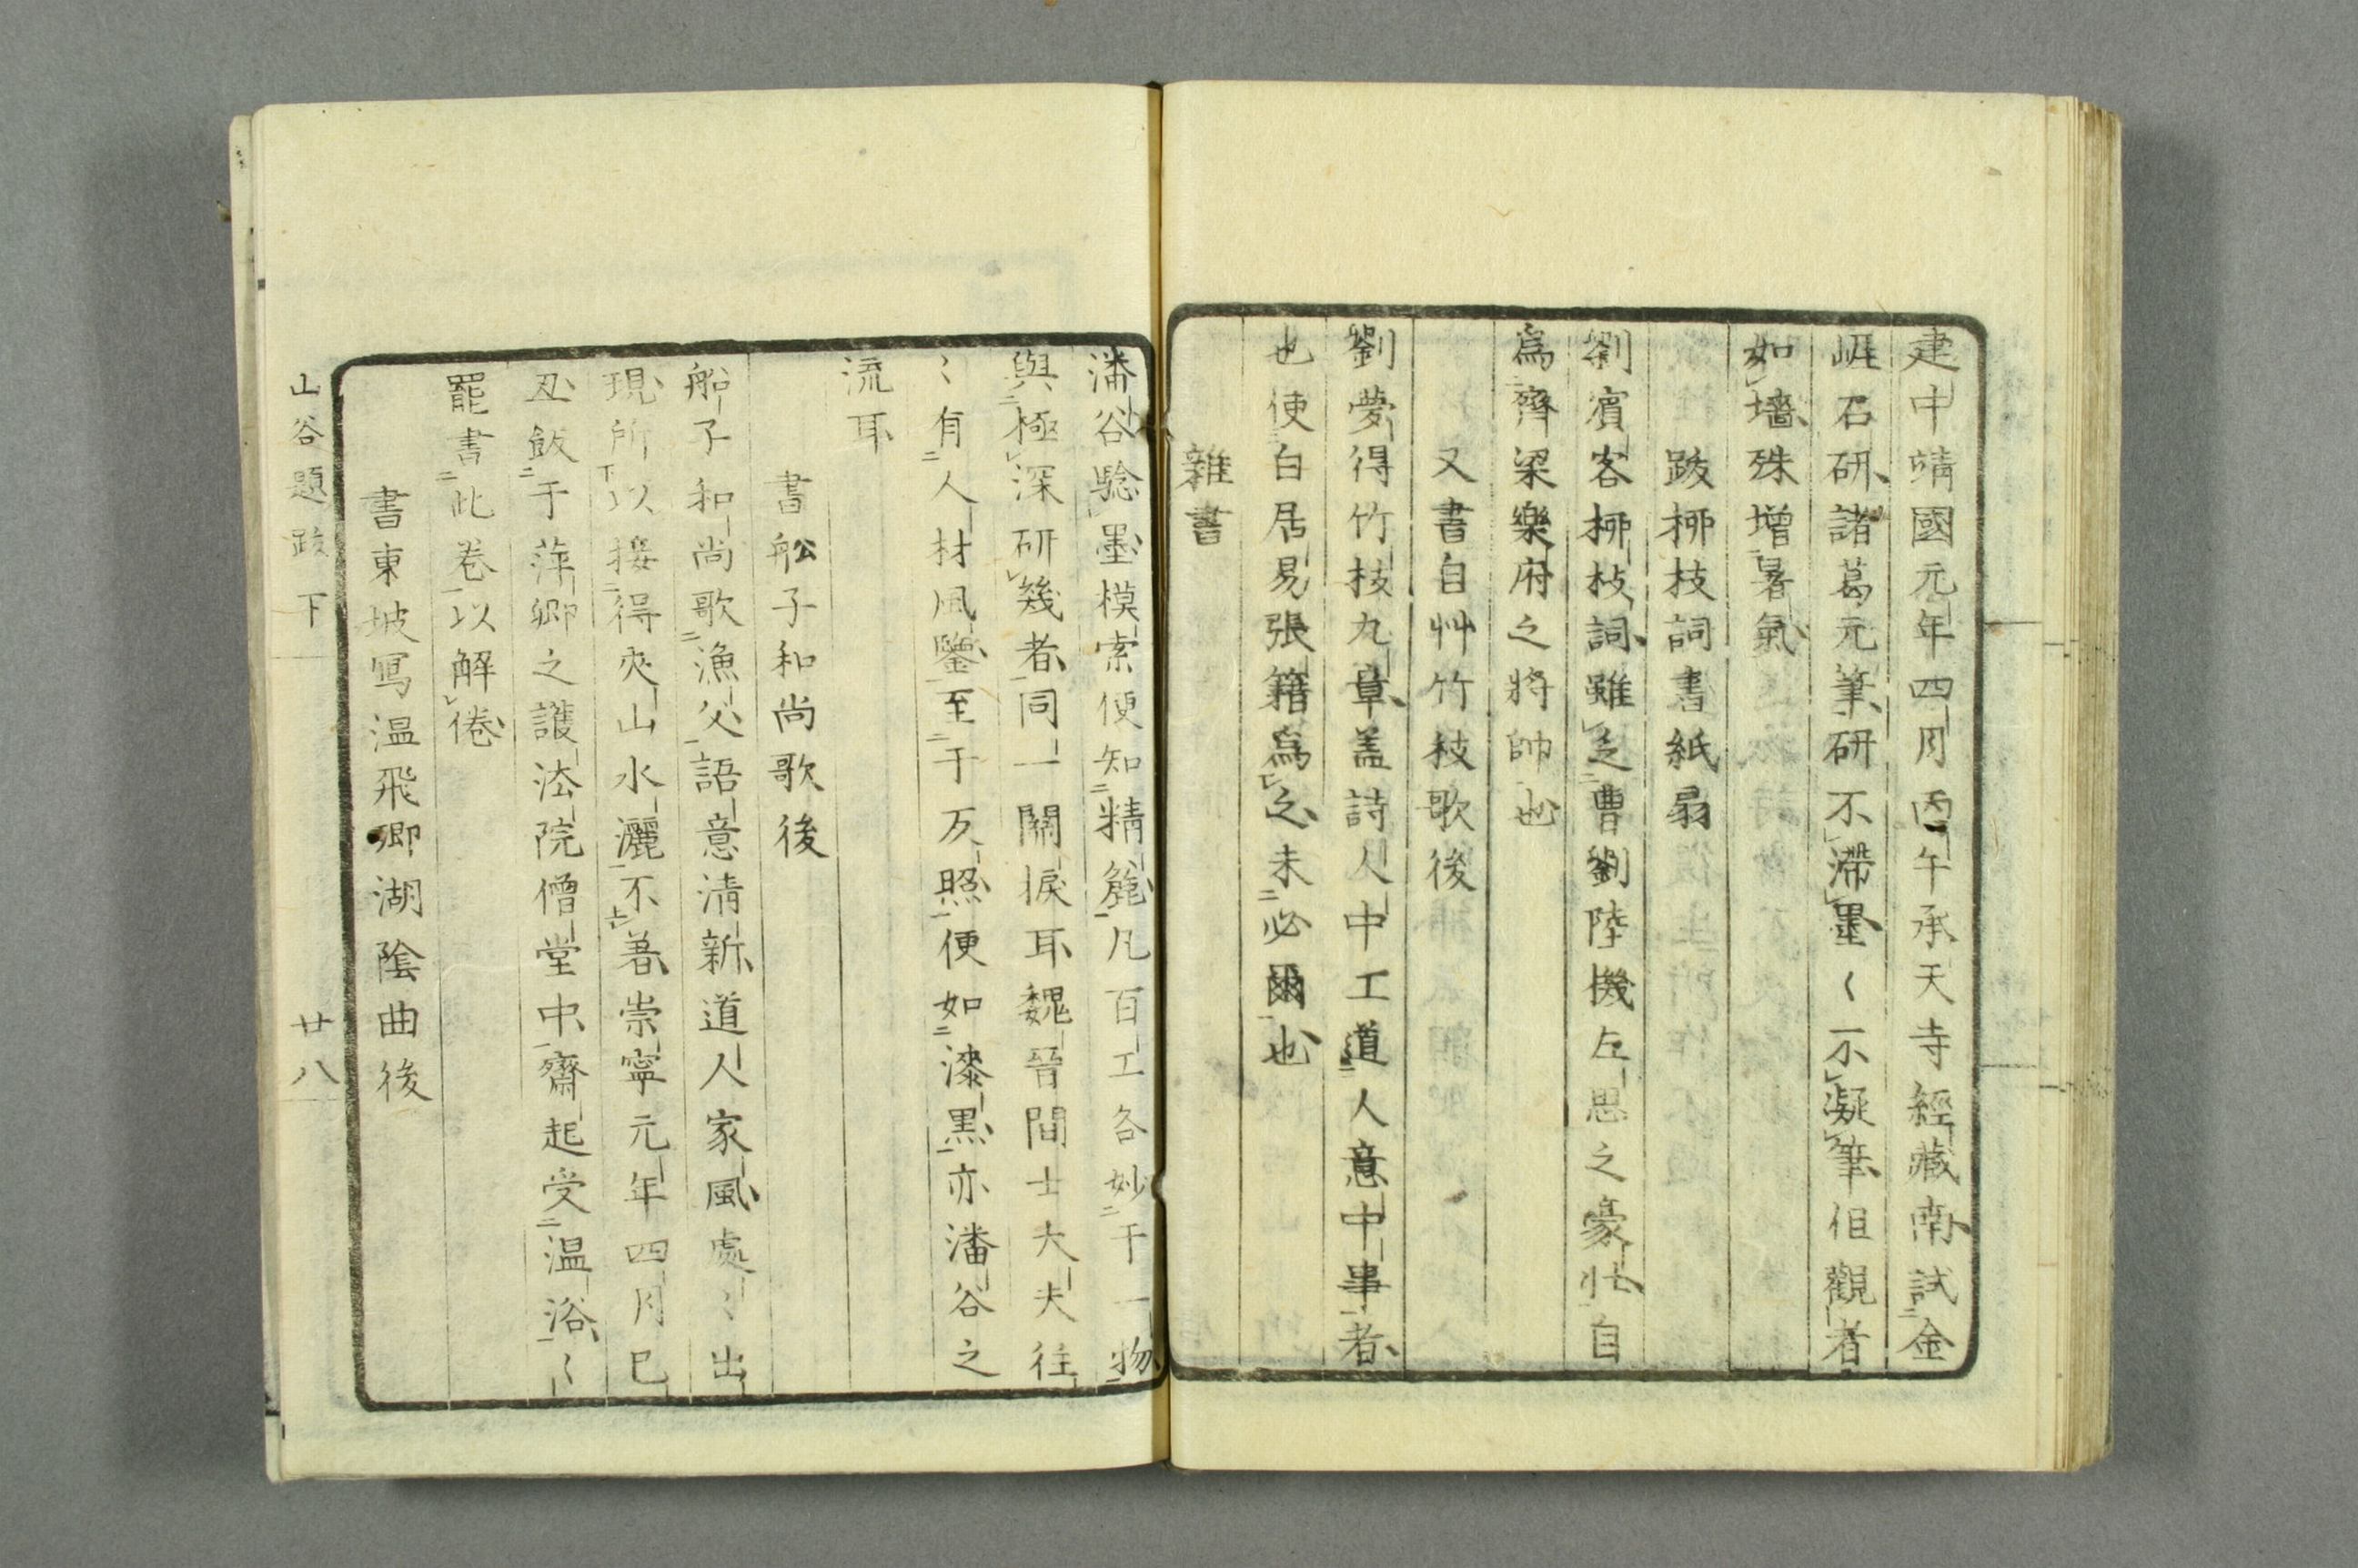 建中靖國元年四月丙午承天寺經藏南試金
崕石研諸葛元筆研不滯墨〻不凝筆但觀者
如墻殊增暑氣
跋柳枝詞書紙扇
劉賓客柳枝詞雖乏曹劉陸機左思之豪壯自
爲齊梁樂府之將帥也
又書自艸竹枝歌後
劉夢得竹枝九章盖詩人中工道人意中事者
也使白居易張籍爲之未必爾也
雜書
潘谷騐墨模索便知精麁凡百工各妙于一物
與極深研幾者同一關捩耳魏晉間士大夫往
〻有人材風鑒至于反照便如漆黒亦潘谷之
流耳
書舩子和尚歌後
船子和尚歌漁父語意清新道人家風處〻出
現所以接得夾山水灑不著崇寧元年四月巳
丑飯于萍鄉之護法院僧堂中齋起受温浴〻
罷書此卷以解倦
書東坡寫温飛卿湖陰曲後
山谷題跋下 廿八